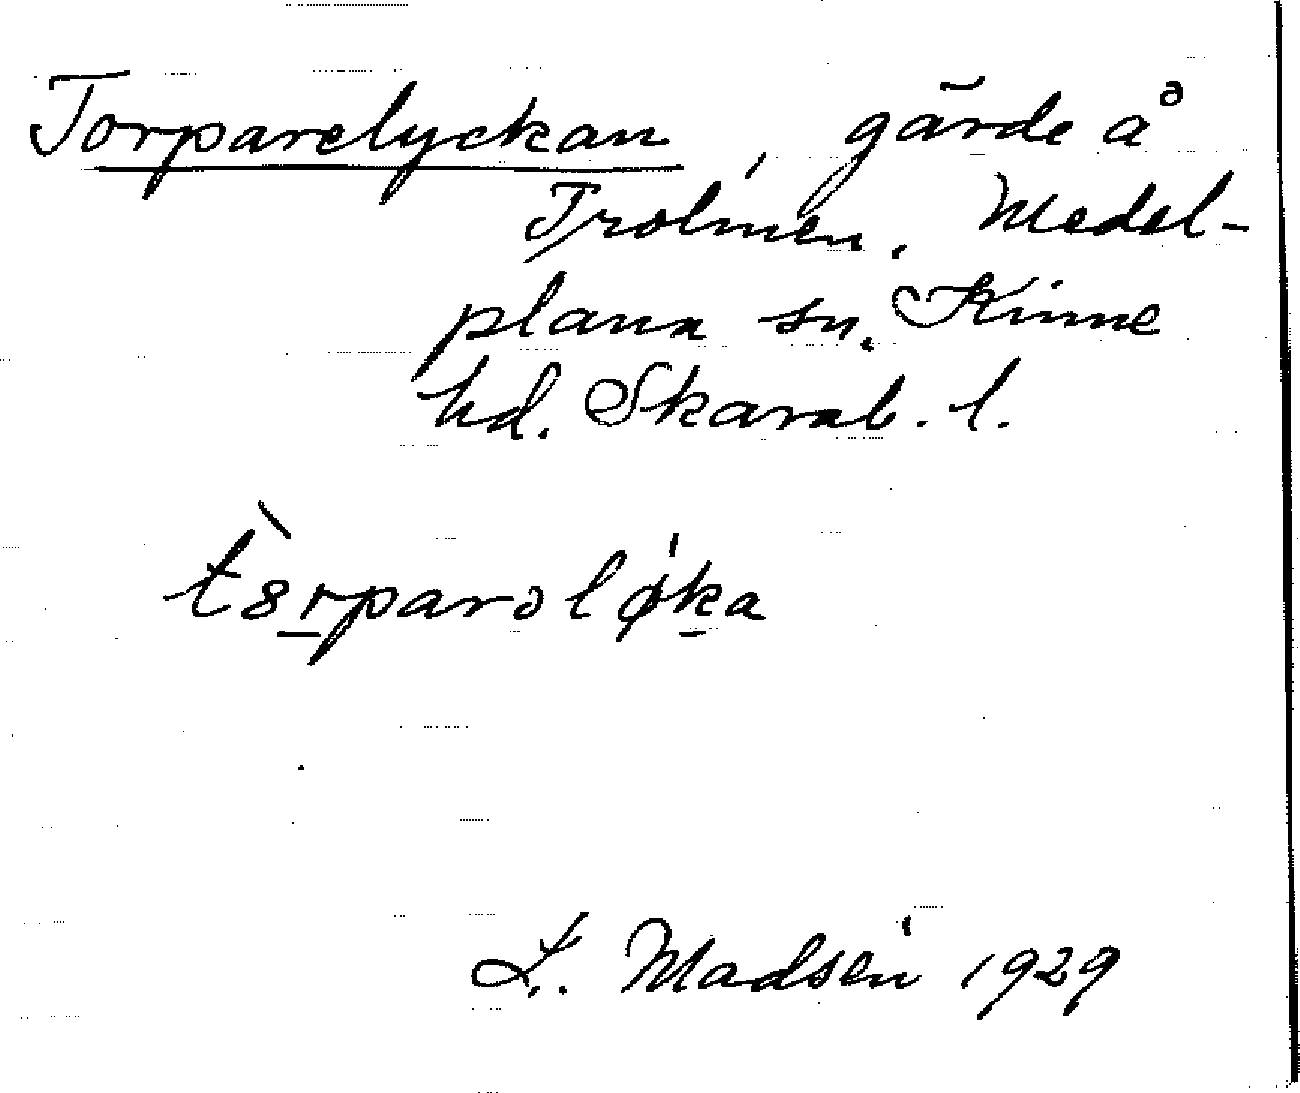 Torparelyckan, gärde å
Trolmen, Medel-
plana sn. Kinne
hd. Skarab. l.
tȣ̀rparəlǿka
L. Madsén 1929